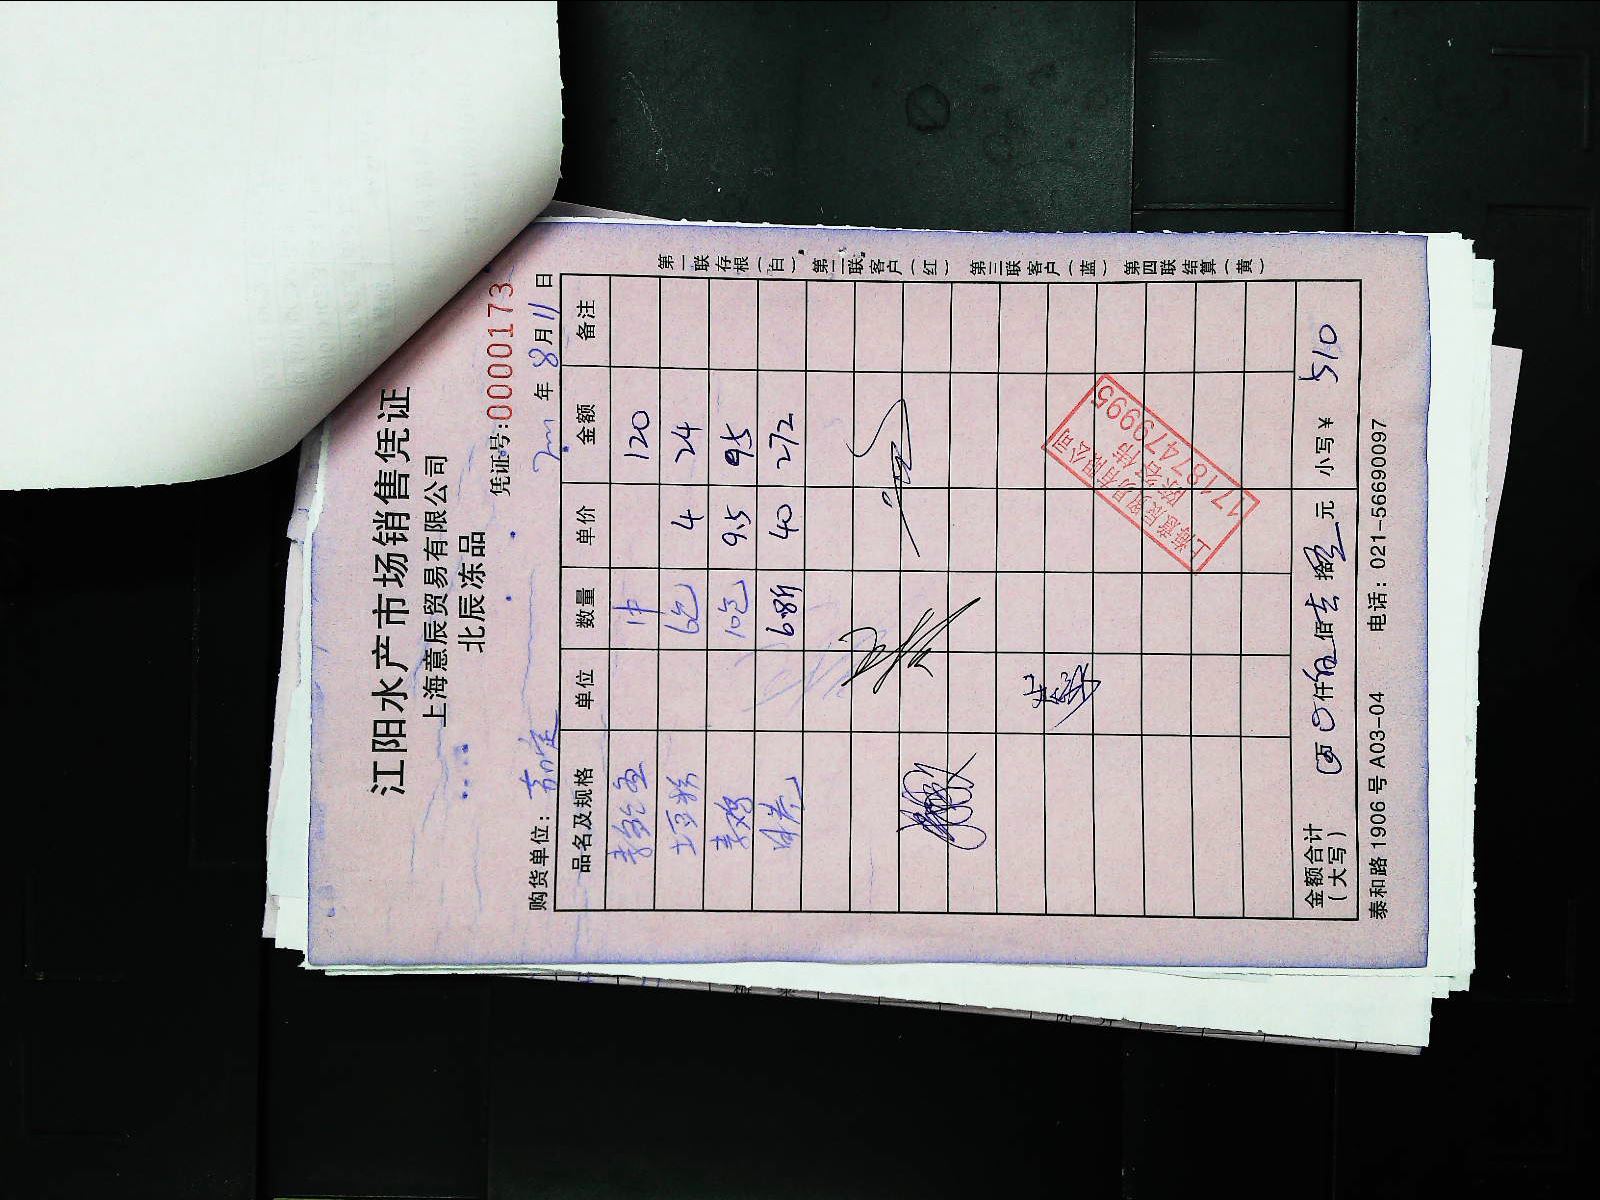 江阳水产市场销售凭证
上海意辰贸易有限公司
北辰冻品
凭证号:0000173
购货单位: 嘉定 年 8月11日
品名及规格 单位 数量 单价 金额 备注
1件 120
土豆粉 6包 4 24
素鸡 10包 9.5 95
6.8斤 40 272
上海意辰贸易有限公司
陈容伟
17187479995
金额合计 仟伍佰壹拾 元 小写¥ 510
(大写)
泰和路1906号A03-04 电话: 021-56690097
第一联存根(白) 第二联客户(红) 第三联客户(蓝) 第四联结算(黄)